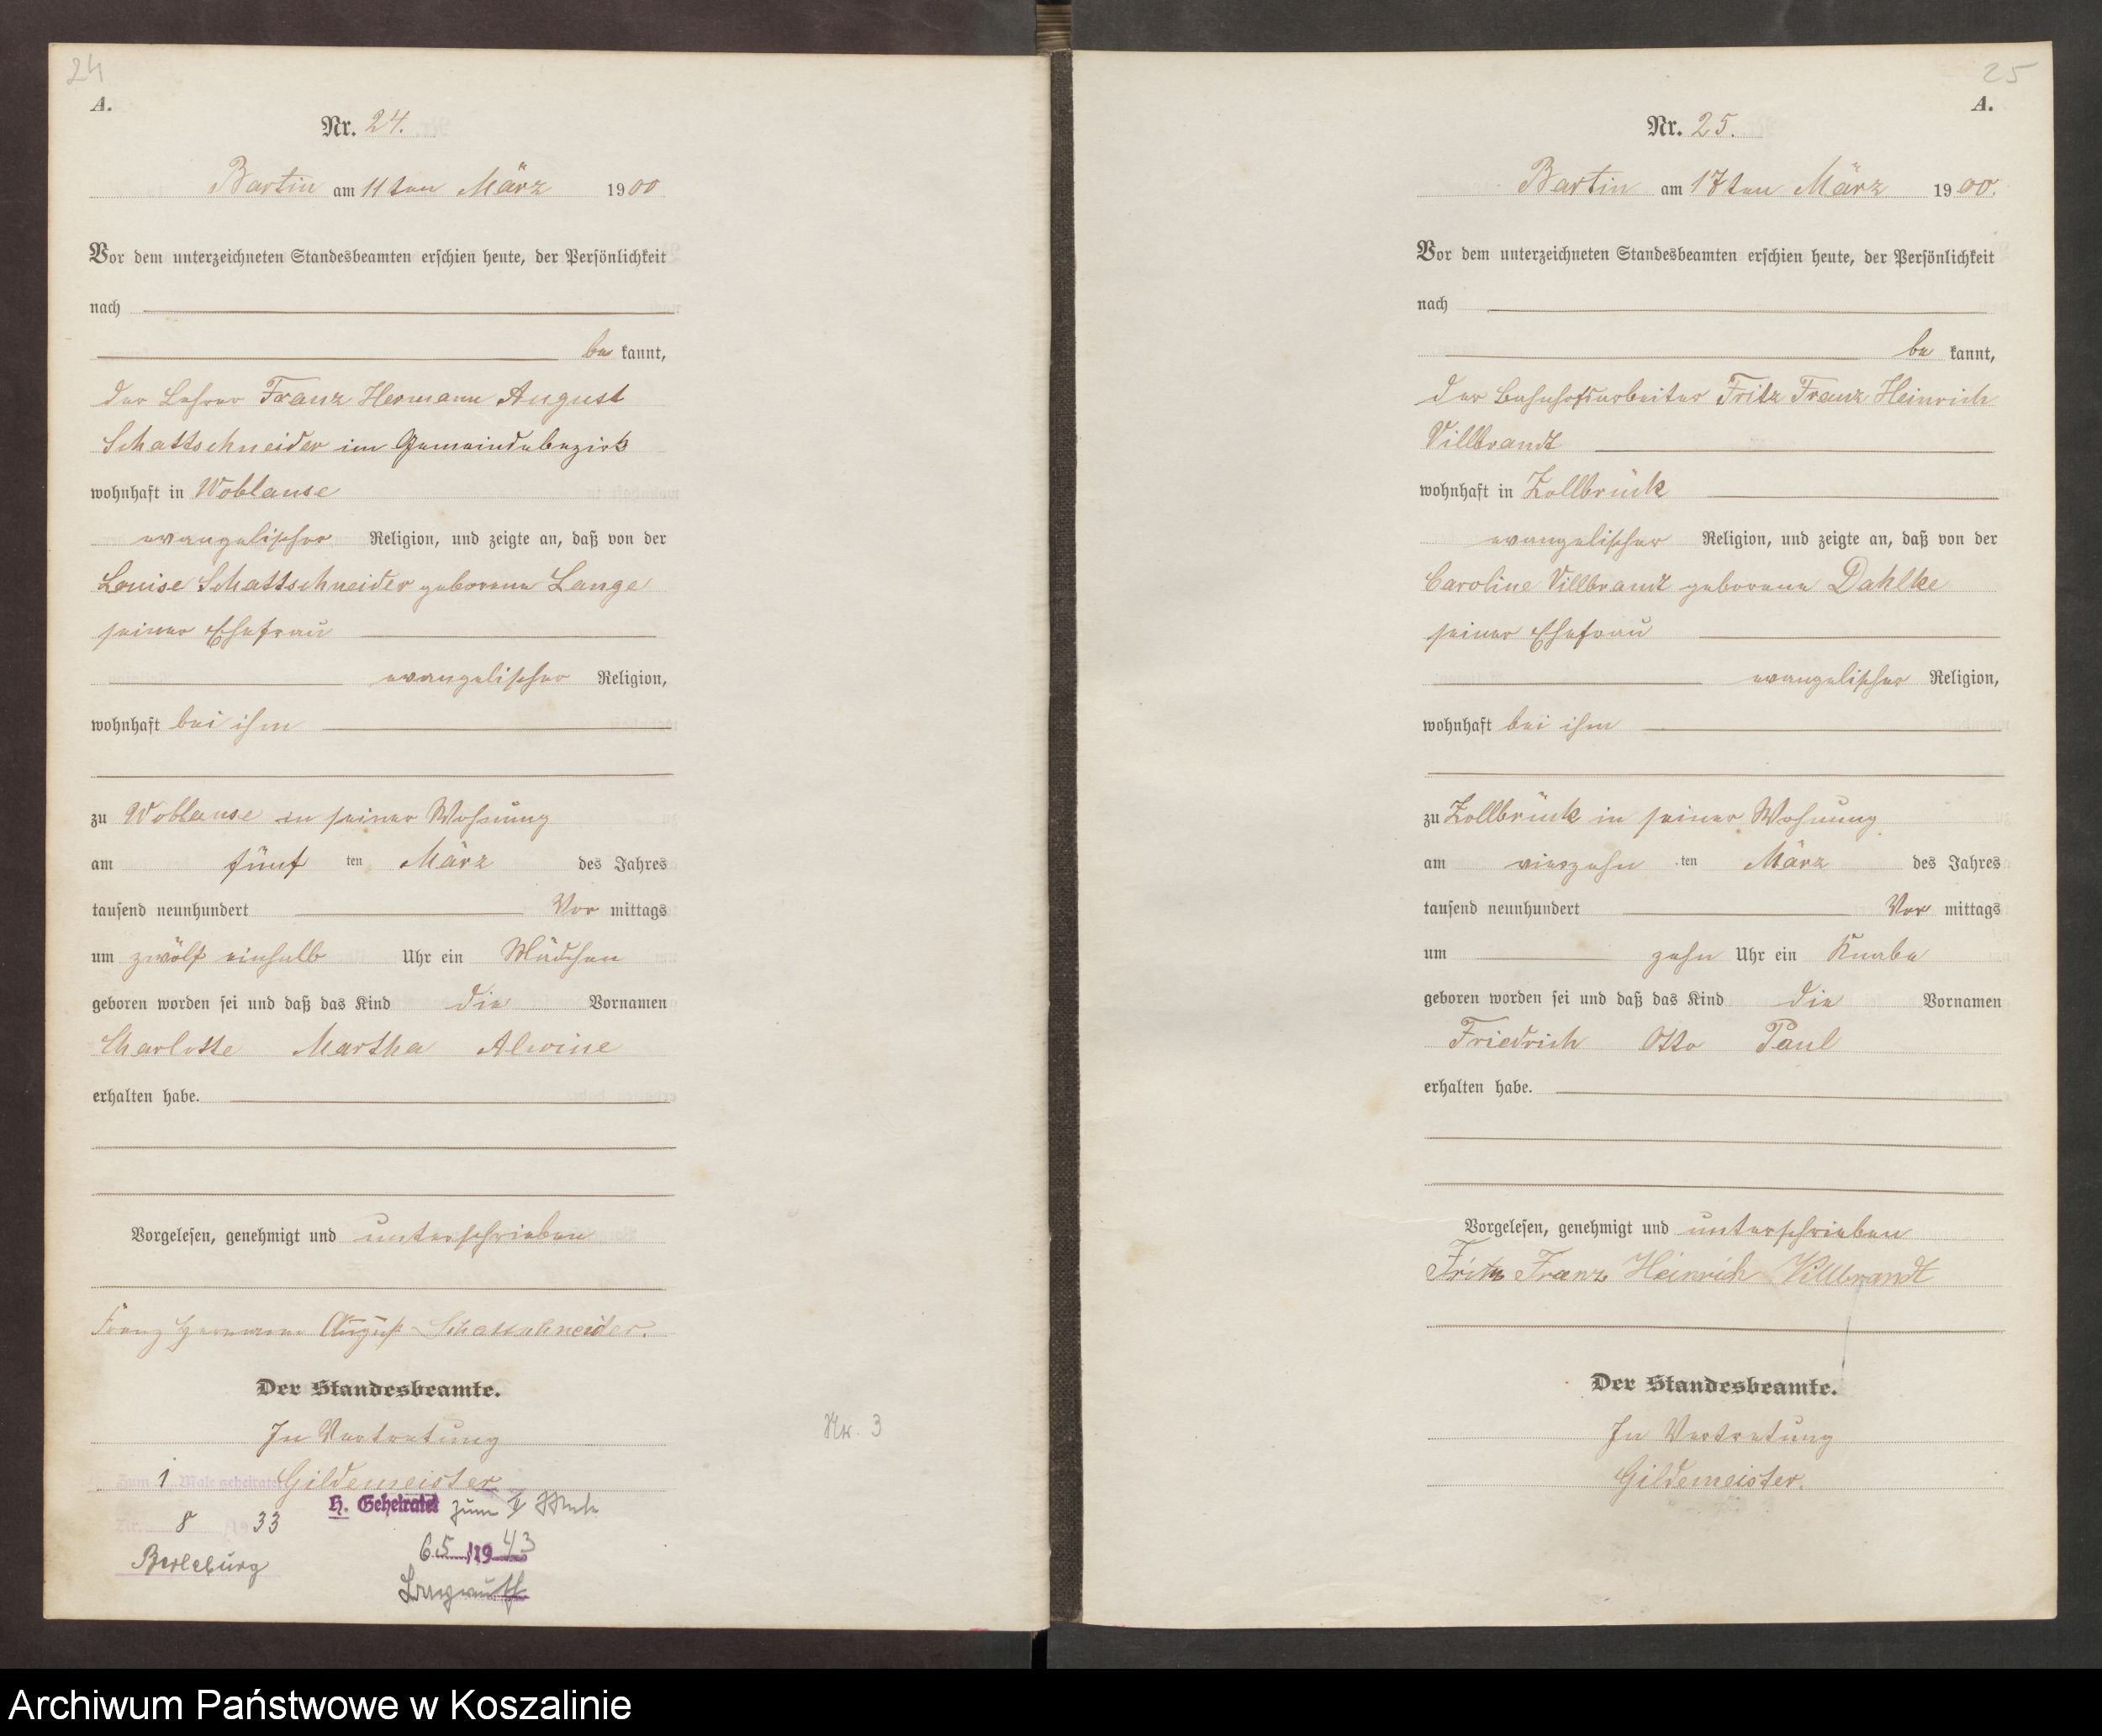 24
A.
Nr. 24.
Bartin am 11ten März 1900
Vor dem unterzeichneten Standesbeamten erschien heute, der Persönlichkeit
nach
be kannt,
der Lehrer Franz Hermann August
Schattschneider im Gemeindebezirk
wohnhaft in Woblanse
evangelischer Religion, und zeigte an, daß von der
Louise Schattschneider geborene Lange
seiner Ehefrau
evangelischer Religion,
wohnhaft bei ihm
zu Woblanse in seiner Wohnung
am fünf ten März des Jahres
tausend neunhundert Vor mittags
um zwölf einhalb Uhr ein Mädchen
geboren worden sei und daß das Kind die Vornamen
Charlotte Martha Alwine
erhalten habe.
Vorgelesen, genehmigt und unterschrieben
Franz Hermann August Schattschneider.
Der Standesbeamte.
In Vertretung
Gildemeister
Zum 1 Male geheiratet
Nr. 8 /1933
Berleburg
H. Geheiratet zum II
65 /1943
Nr. 3
25
A.
Nr. 25.
Bartin am 17ten März 1900.
Vor dem unterzeichneten Standesbeamten erschien heute, der Persönlichkeit
nach
be kannt,
der Bahnhofsarbeiter Fritz Franz Heinrich
Villbrandt
wohnhaft in Zollbrück
evangelischer Religion, und zeigte an, daß von der
Caroline Villbrandt geborene Dahlke
seiner Ehefrau
evangelischer Religion,
wohnhaft bei ihm
zu Zollbrück in seiner Wohnung
am vierzehn ten März des Jahres
tausend neunhundert Vor mittags
um zehn Uhr ein Knabe
geboren worden sei und daß das Kind die Vornamen
Friedrich Otto Paul
erhalten habe.
Vorgelesen, genehmigt und unterschrieben
Fritz Franz Heinrich Villbrandt
Der Standesbeamte.
In Vertretung
Gildemeister.
Archiwum Państwowe w Koszalinie